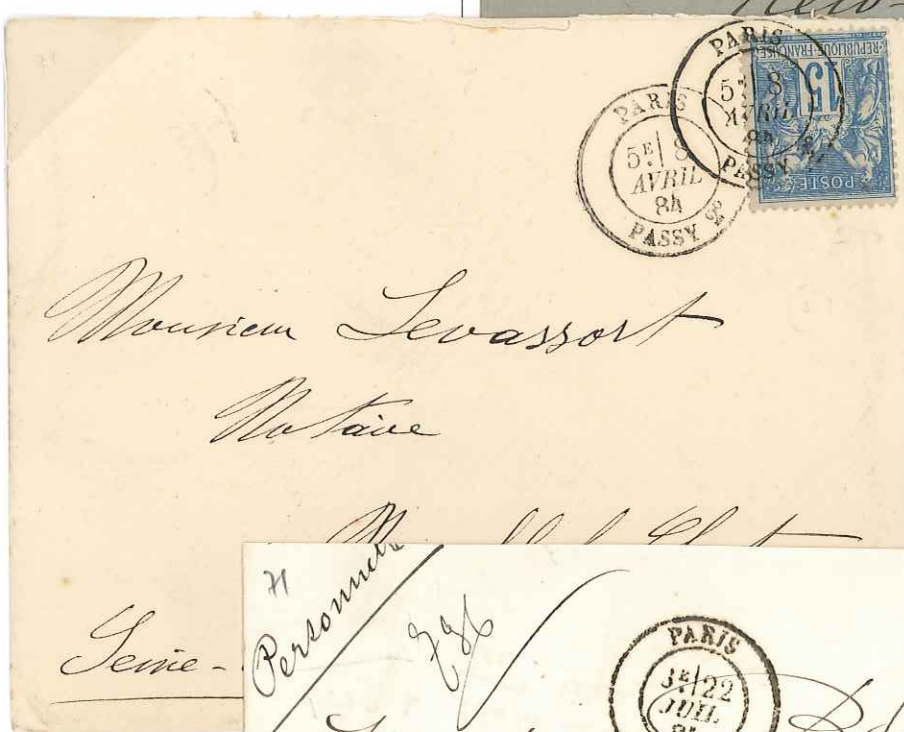 New-
PARIS
5E 8
AVRIL
84
PASSY
PARIS
5E 8
AVRIL
84
PASSY
REPUBLIQUE FRANCAISE
15
POSTE
Monsieur Levassort
Notaire
Seine-
71
Personnelle
PARIS
3E 22
JUIL